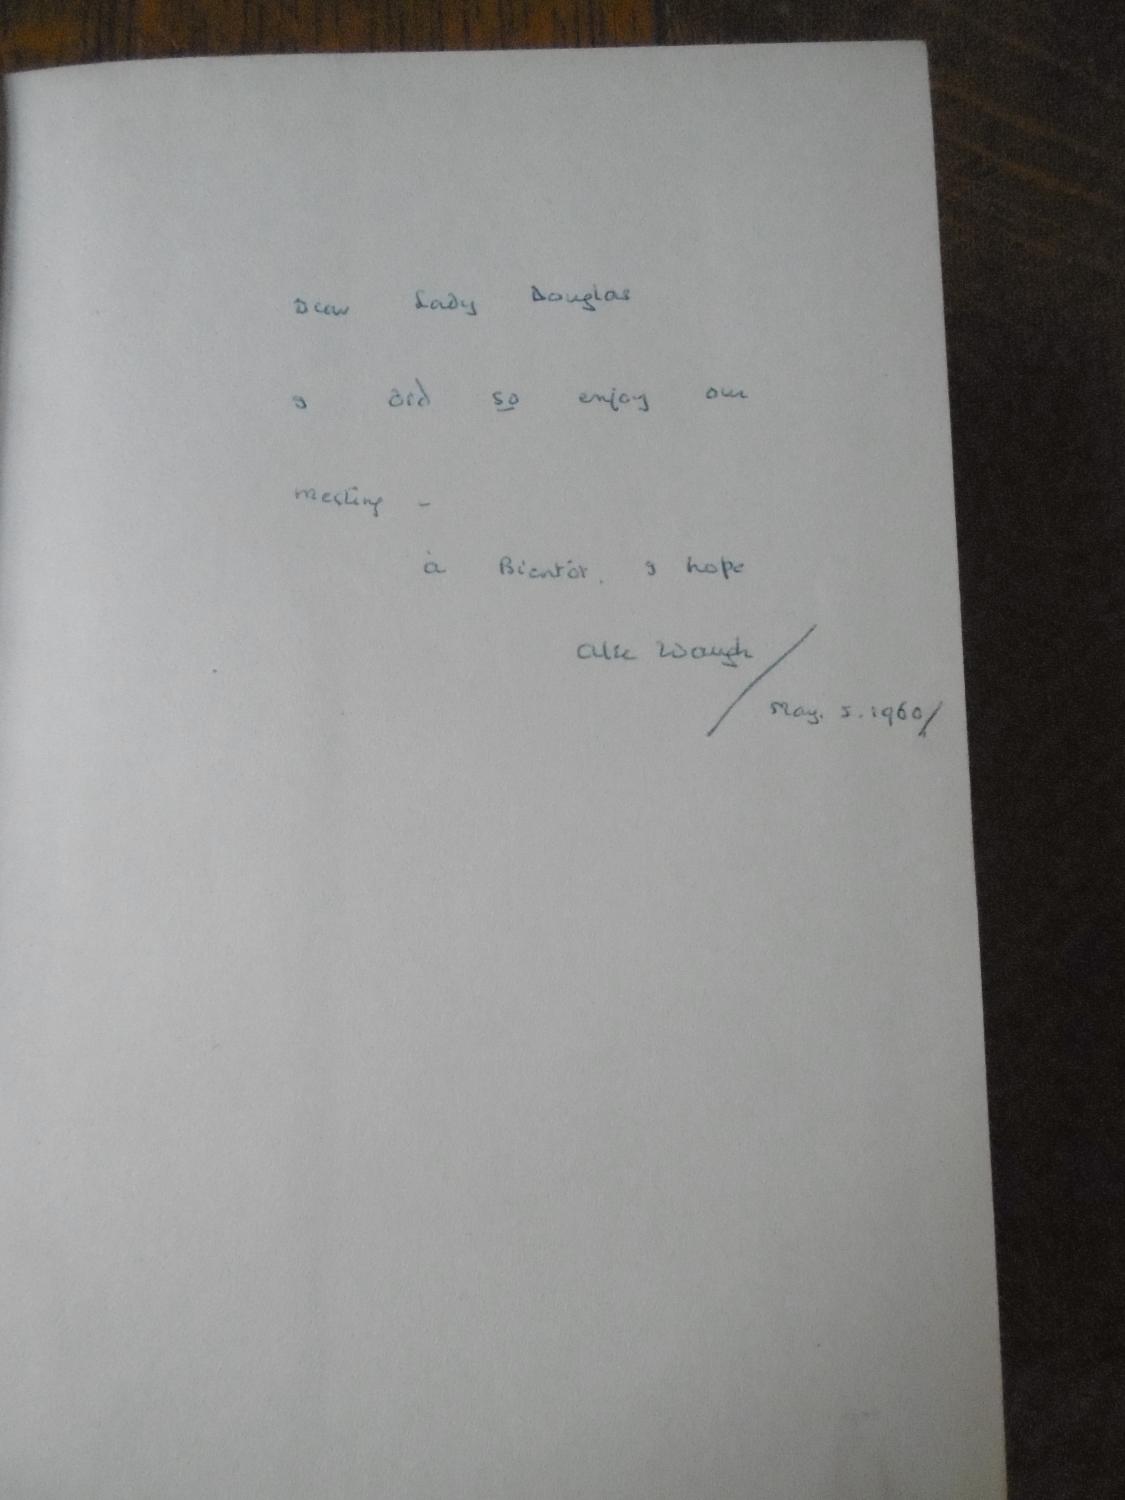 Dear Lady Douglas
I did so enjoy our
meeting -
à Bientôt, I hope
Alec Waugh
May. 5. 1960/